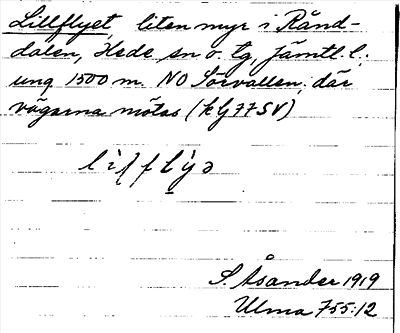 Lillflyet, liten myr i Rånd-
dalen, Hede sn o. tg, Jämtl. l.;
ung. 1500 m. NO Sörvallen, där
vägarna mötas (kbl 77 SV)
S. Åsander 1919
Ulma 755:12